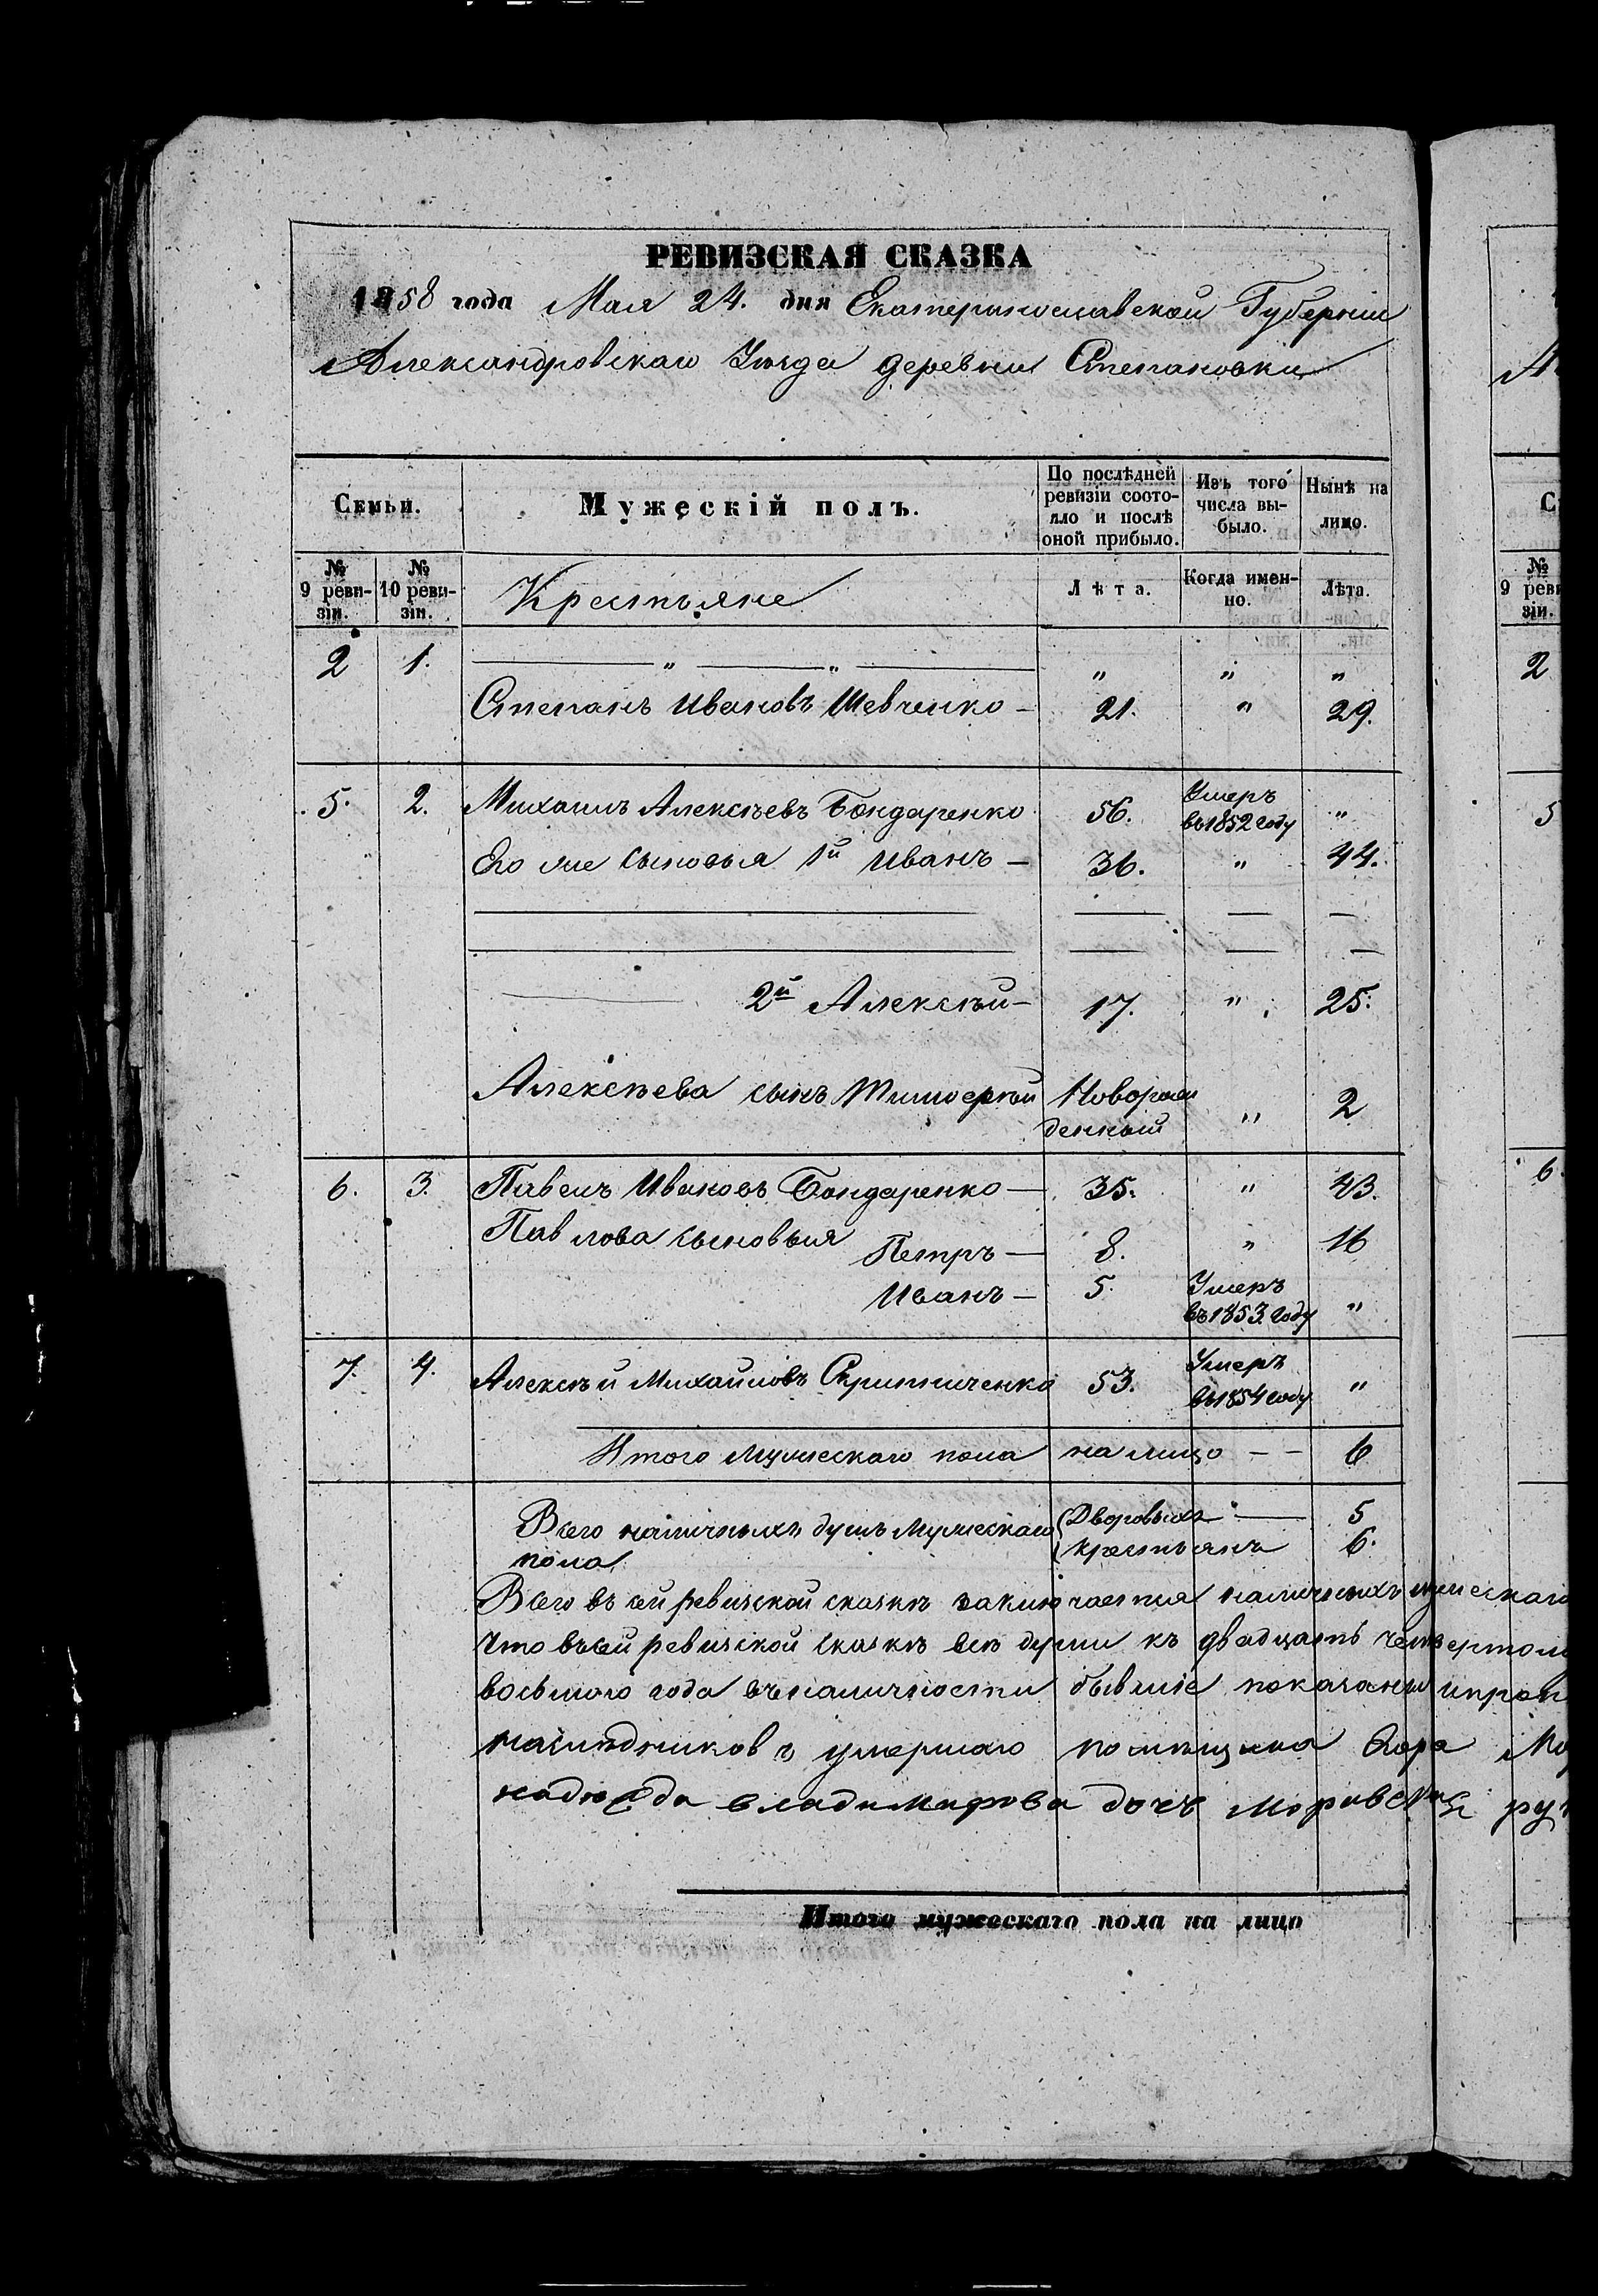 РЕВИЗСКАЯ СКАЗКА
1858 года Мая 24. дня Екатеринославской Губерніи
Александровскаго Уѣзда деревни Степановки
Семьи.
Мужескій полъ.
По послѣдней ревизіи состояло и послѣ оной прибыло.
Изъ того числа выбыло.
Нынѣ на лицо.
№ 9 ревизіи.
№ 10 ревизіи.
Крестьяне
Лѣта.
Когда именно.
Лѣта.
2 1. „ „ „ „ „
Степанъ Ивановъ Шевченко – 21. „ 29.
5. 2. Михаилъ Алексѣевъ Бондаренко 56. Умеръ въ 1852 году „
Его же сыновья 1й Иванъ – 36. „ 44.
2й Алексѣй – 17. „ 25.
Алексѣева сынъ Тимофей Новорожденный „ 2
6. 3. Павелъ Ивановъ Бондаренко – 35. „ 43.
Павлова сыновья
Петръ – 8. „ 16
Иванъ – 5. Умеръ въ 1853. году „
7. 4. Алексѣй Михайловъ 53. Умеръ въ 1854 году „
Итого мужескаго пола на лицо – – 6
Всего наличныхъ душъ мужескаго пола
Дворовыхъ – 5
крестьянъ 6.
Всего въ сей ревизской сказкѣ заключается наличныхъ мужескаго
Что въ сей ревизской сказкѣ всѣ души къ двадцать четвертому
восьмого года въ наличности бывшіе показаны и
наслѣдниковъ умершаго помѣщика
владимирова дочь
Итого мужескаго пола на лицо
С
№ 9 реви
зіи.
2
5
6.